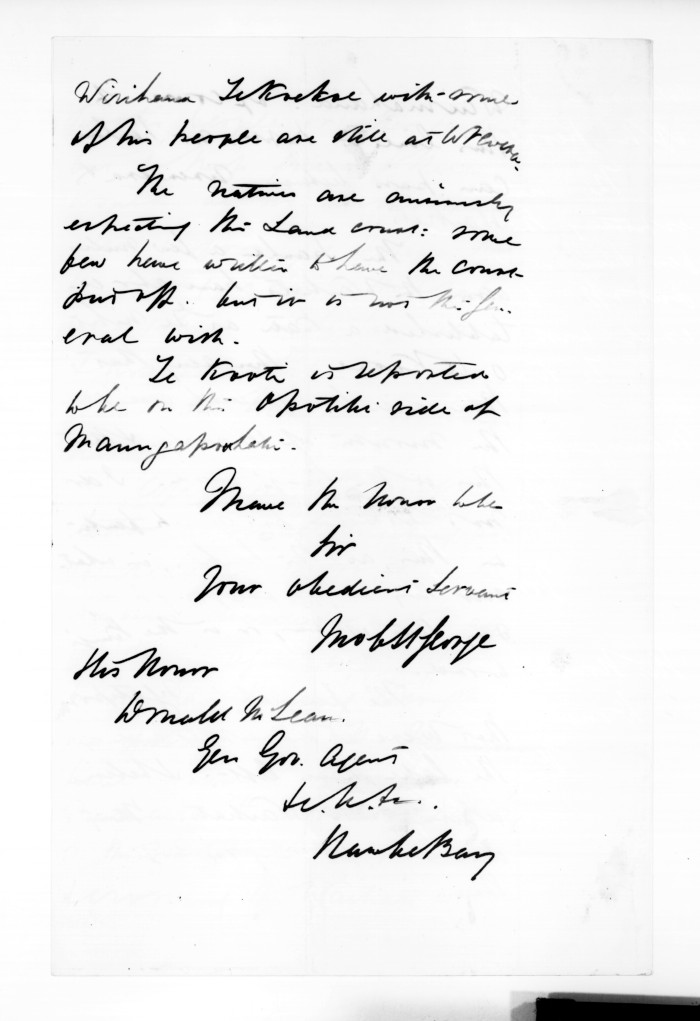 Wirihana Te Koekoe with some
of his people are still at
The natives are anxiously
expecting the Land court: some
few have written to have the court
put off. but it is not the gen-
eral wish.
Te Kooti is reported
to be on the Opotiki side of
Maungapohatu.
I have the honor to be
Sir
Your obedient Servant
Jno C St George
His Honor
Donald McLean.
Gen Gov. Agent
&c. &c. &c..
Hawke Bay